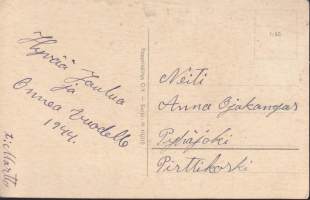 Hyvää Joulua
ja
Onnea Vuodelle
1944.
Neiti
Anna Ojakangas
Pyhäjoki
Pirttikoski